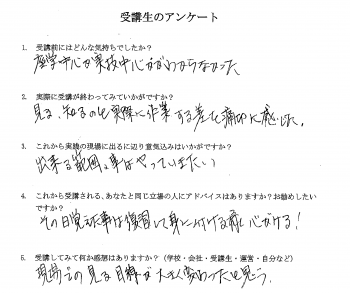 受講生のアンケート
1. 受講前にはどんな気持ちでしたか？
座学中心か実技中心かがわからなかった
2. 実際に受講が終わってみていかがですか？
見る、知るのと実際に作業する差を痛切に感じた。
3. これから実践の現場に出るに辺り意気込みはいかがですか？
出来る範囲の事はやっていきたい
4. これから受講される、あなたと同じ立場の人にアドバイスはありますか？お勧めしたい
ですか？
その日覚えた事は復習して身に付ける様 心がける！
5. 受講してみて何か感想はありますか？（学校・会社・受講生・運営・自分など）
現場での見る目線が大きく変わったと思う。